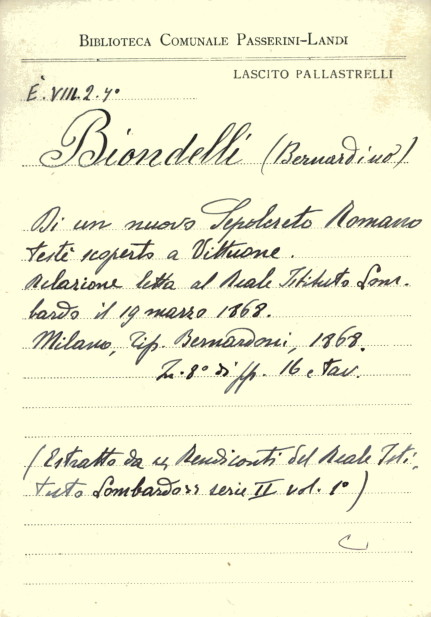 BIBLIOTECA COMUNALE PASSERINI-LANDI
LASCITO PALLASTRELLI
E. VIII. 2. 4°
Biondelli (Bernardino)
Di un nuovo Sepolcreto Romano
testè scoperto a Vittuone.
Relazione letta al Reale Istituto Lom-
bardo il 19 marzo 1868.
Milano, Tip. Bernardoni, 1868.
In-8° di pp. 16 e tav.
(Estratto da "Rendiconti del Reale Isti-
tuto Lombardo" serie II vol. 1°)